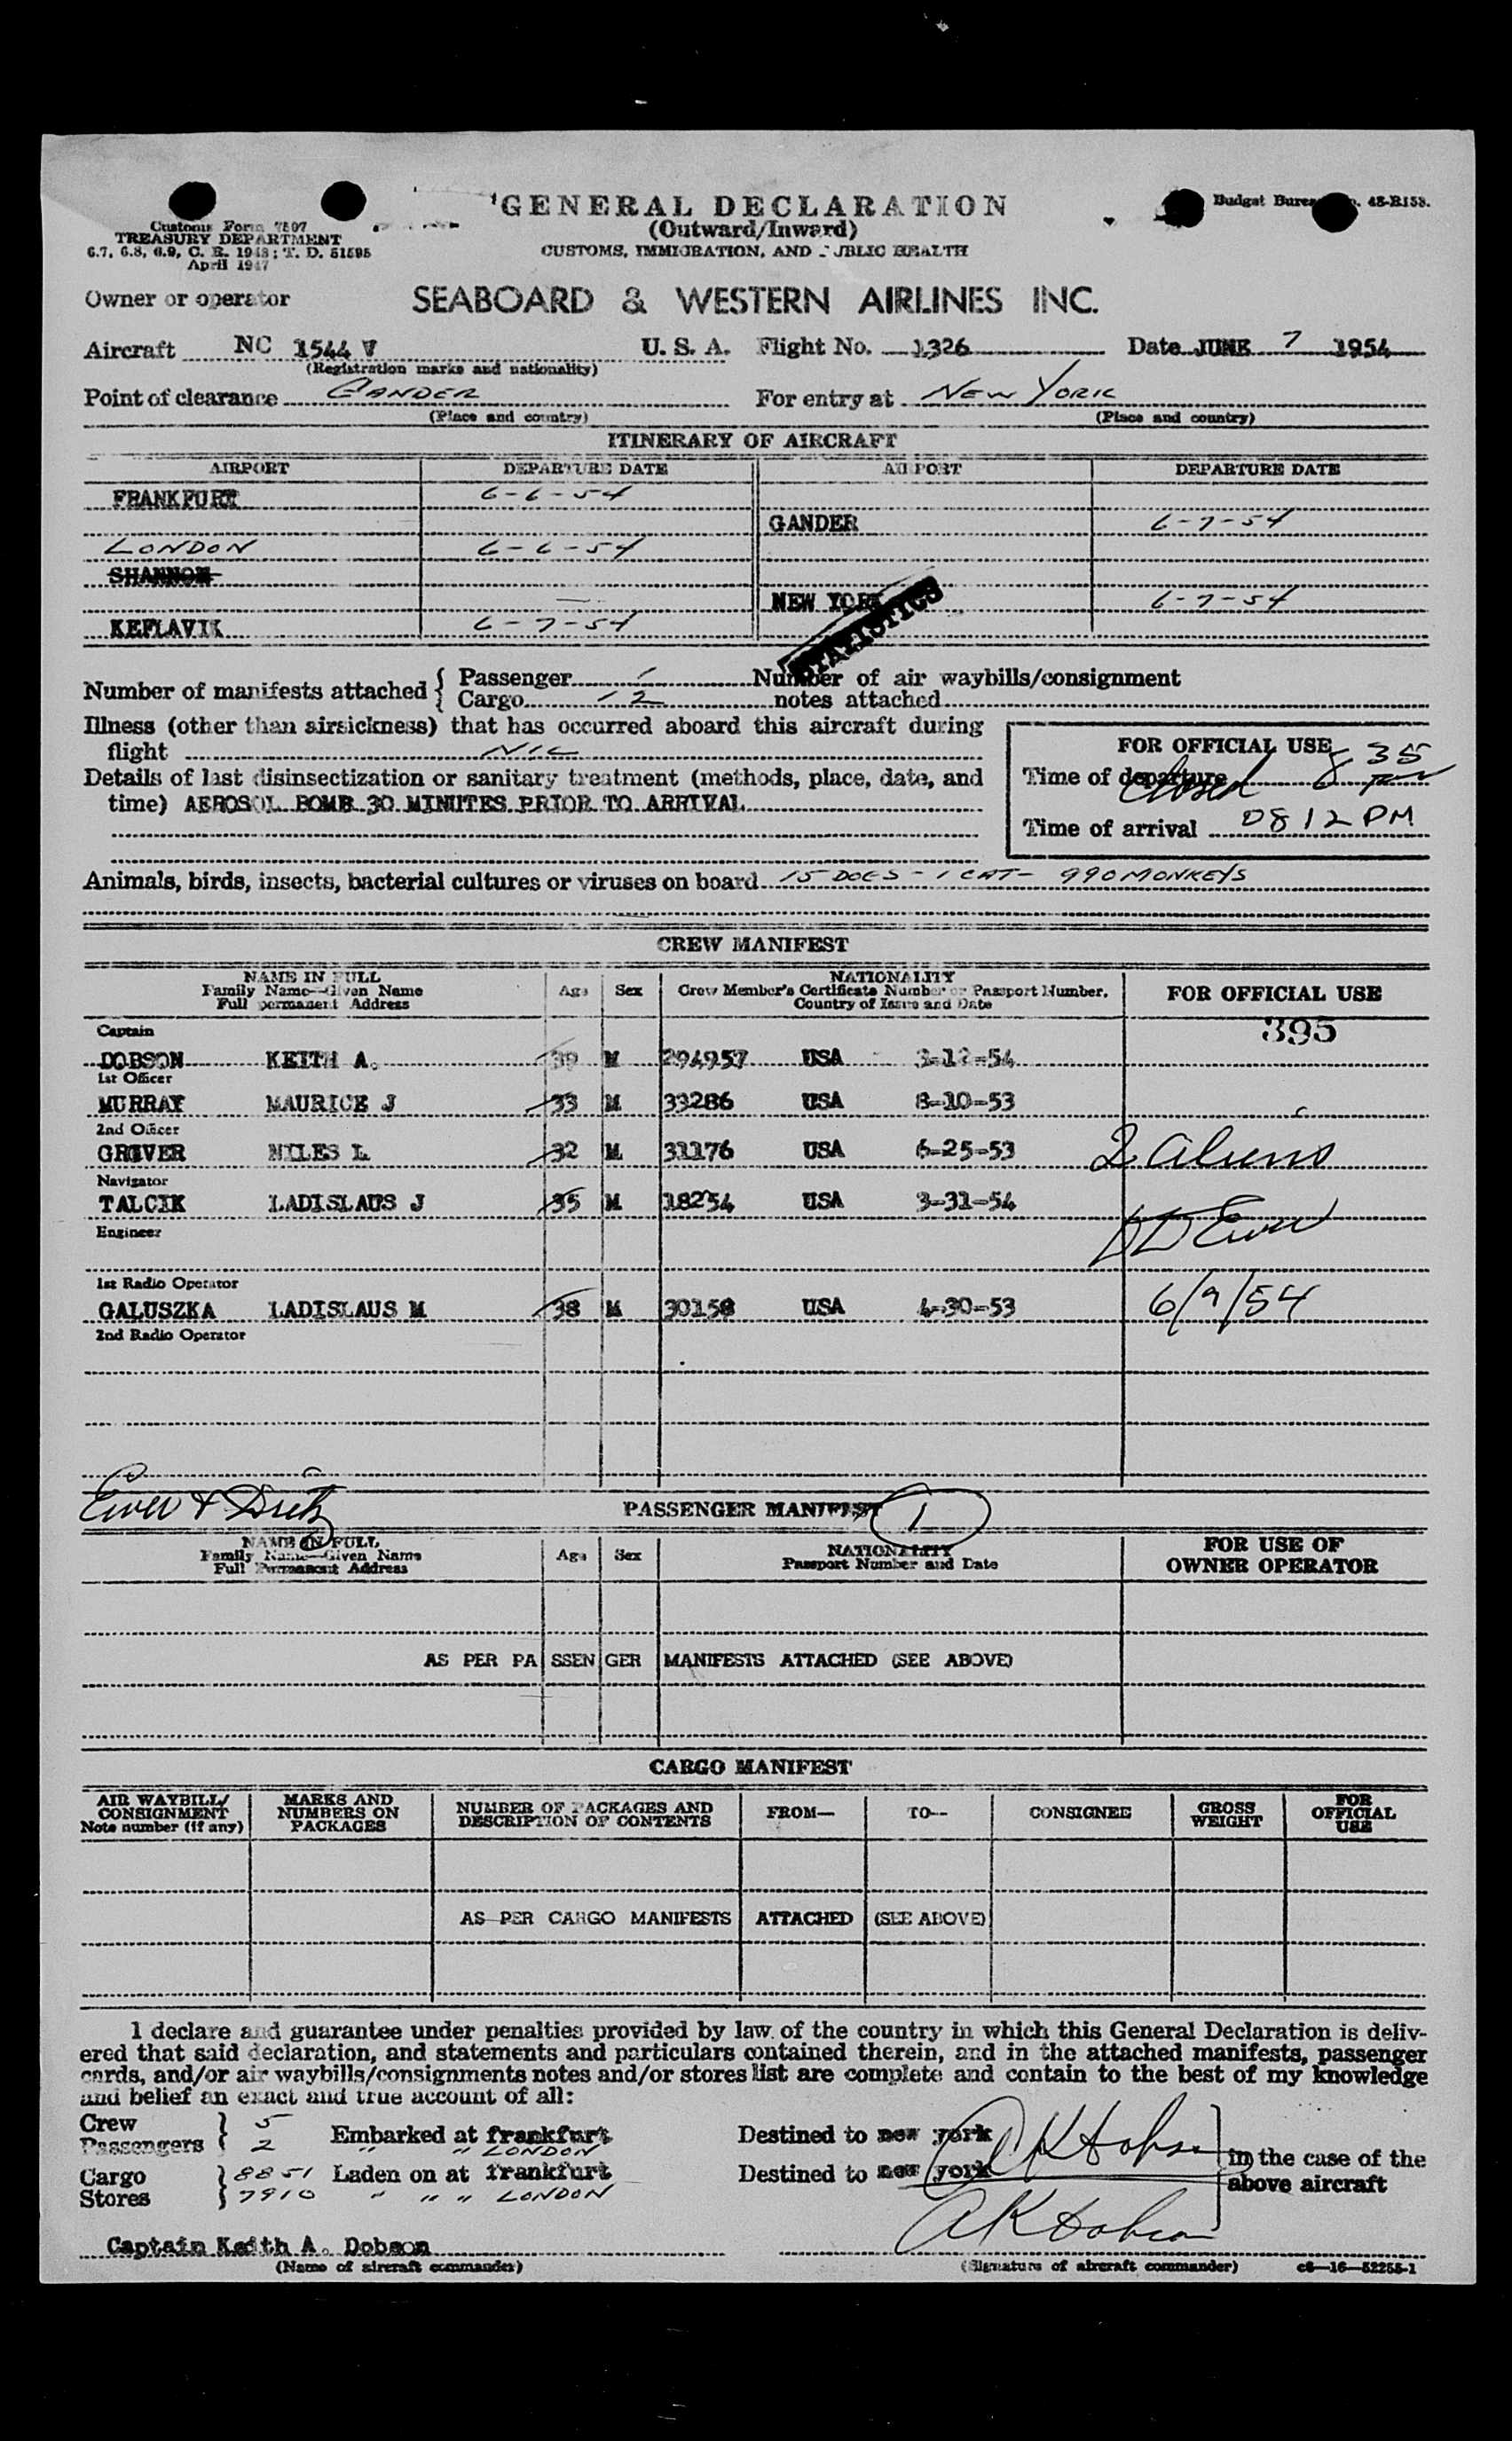 Customs Form 7507
TREASURY DEPARTMENT
6.7, 6.8, 6.9, C. R. 1943; T. D. 51595
April 1947
GENERAL DECLARATION
(Outward/Inward)
CUSTOMS, IMMIGRATION, AND PUBLIC HEALTH
Budget Bureau No. 48-R153.
Owner or operator SEABOARD & WESTERN AIRLINES INC.
Aircraft NC 1544 V U. S. A. Flight No. 1326 Date JUNE 7 1954
(Registration marks and nationality)
Point of clearance GANDER For entry at NEW YORK
(Place and country) (Place and country)
ITINERARY OF AIRCRAFT
AIRPORT DEPARTURE DATE AIRPORT DEPARTURE DATE
FRANKFURT 6-6-54
GANDER 6-7-54
LONDON 6-6-54
SHANNON
NEW YORK 6-7-54
STATISTICS
KEFLAVIK 6-7-54
Number of manifests attached { Passenger 1 Number of air waybills/consignment
Cargo 12 notes attached
Illness (other than airsickness) that has occurred aboard this aircraft during
flight NIL
Details of last disinsectization or sanitary treatment (methods, place, date, and
time) AEROSOL BOMB 30 MINUTES PRIOR TO ARRIVAL
FOR OFFICIAL USE
Time of departure closed 8 35 PM
Time of arrival 0812 PM
Animals, birds, insects, bacterial cultures or viruses on board 15 DOGS - 1 CAT - 990 MONKEYS
CREW MANIFEST
NAME IN FULL
Family Name—Given Name
Full permanent Address
Age Sex
NATIONALITY
Crew Member's Certificate Number or Passport Number,
Country of Issue and Date
FOR OFFICIAL USE
395
Captain
DOBSON KEITH A. 39 M 294957 USA 3-12-54
1st Officer
MURRAY MAURICE J 33 M 33286 USA 8-10-53
2nd Officer
GROVER MILES L 32 M 31176 USA 6-25-53
2 aliens
Navigator
TALCIK LADISLAUS J 35 M 18254 USA 3-31-54
Engineer
1st Radio Operator
GALUSZKA LADISLAUS M 38 M 30158 USA 4-30-53
6/9/54
2nd Radio Operator
PASSENGER MANIFEST 1
NAME IN FULL
Family Name—Given Name
Full Permanent Address
Age Sex
NATIONALITY
Passport Number and Date
FOR USE OF
OWNER OPERATOR
AS PER PASSENGER MANIFESTS ATTACHED (SEE ABOVE)
CARGO MANIFEST
AIR WAYBILL/
CONSIGNMENT
Note number (if any)
MARKS AND
NUMBERS ON
PACKAGES
NUMBER OF PACKAGES AND
DESCRIPTION OF CONTENTS
FROM— TO— CONSIGNEE
GROSS
WEIGHT
FOR
OFFICIAL
USE
AS PER CARGO MANIFESTS ATTACHED (SEE ABOVE)
I declare and guarantee under penalties provided by law of the country in which this General Declaration is deliv-
ered that said declaration, and statements and particulars contained therein, and in the attached manifests, passenger
cards, and/or air waybills/consignments notes and/or stores list are complete and contain to the best of my knowledge
and belief an exact and true account of all:
Crew } 5 Embarked at frankfurt Destined to new york
Passengers } 2 " " LONDON
Cargo } 8851 Laden on at frankfurt Destined to new york
Stores } 7910 " " " LONDON
in the case of the
above aircraft
Captain Keith A. Dobson
(Name of aircraft commander) (Signature of aircraft commander) c8—16—52255-1